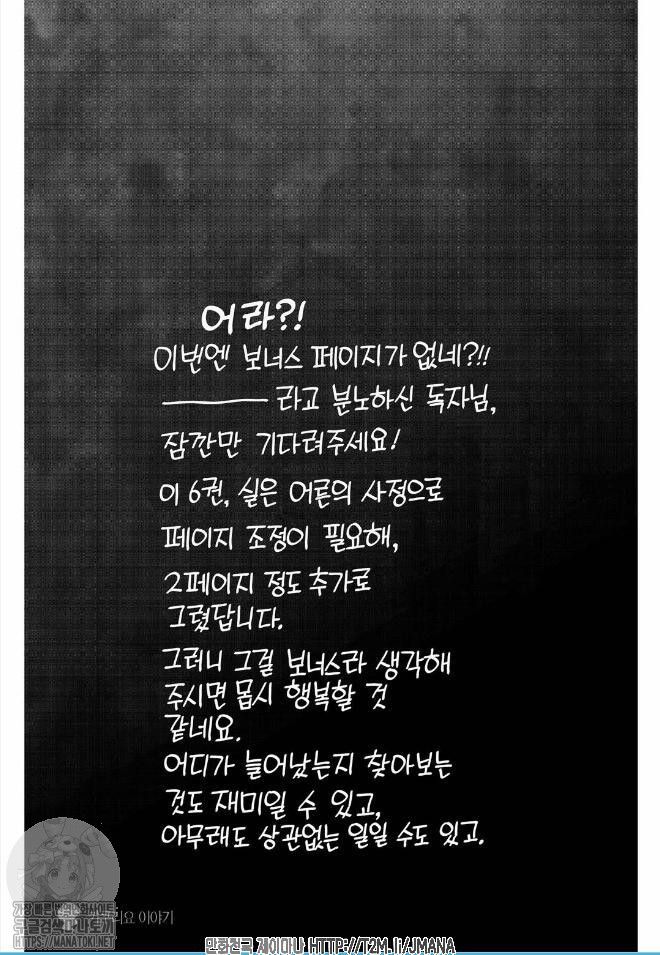 어라?!
이번엔 보너스 페이지가 없네?!!
――라고 분노하신 독자님,
잠깐만 기다려주세요!
이 6권, 실은 어른의 사정으로
페이지 조정이 필요해,
2페이지 정도 추가로
그렸답니다.
그러니 그걸 보너스라 생각해
주시면 몹시 행복할 것
같네요.
어디가 늘어났는지 찾아보는
것도 재미일 수 있고,
아무래도 상관없는 일일 수도 있고.
리요 이야기
가장 빠른 번역만화사이트
구글검색 마나토끼
HTTPS://MANATOKI.NET
만화천국 제이마나 HTTP://T2M.li/JMANA